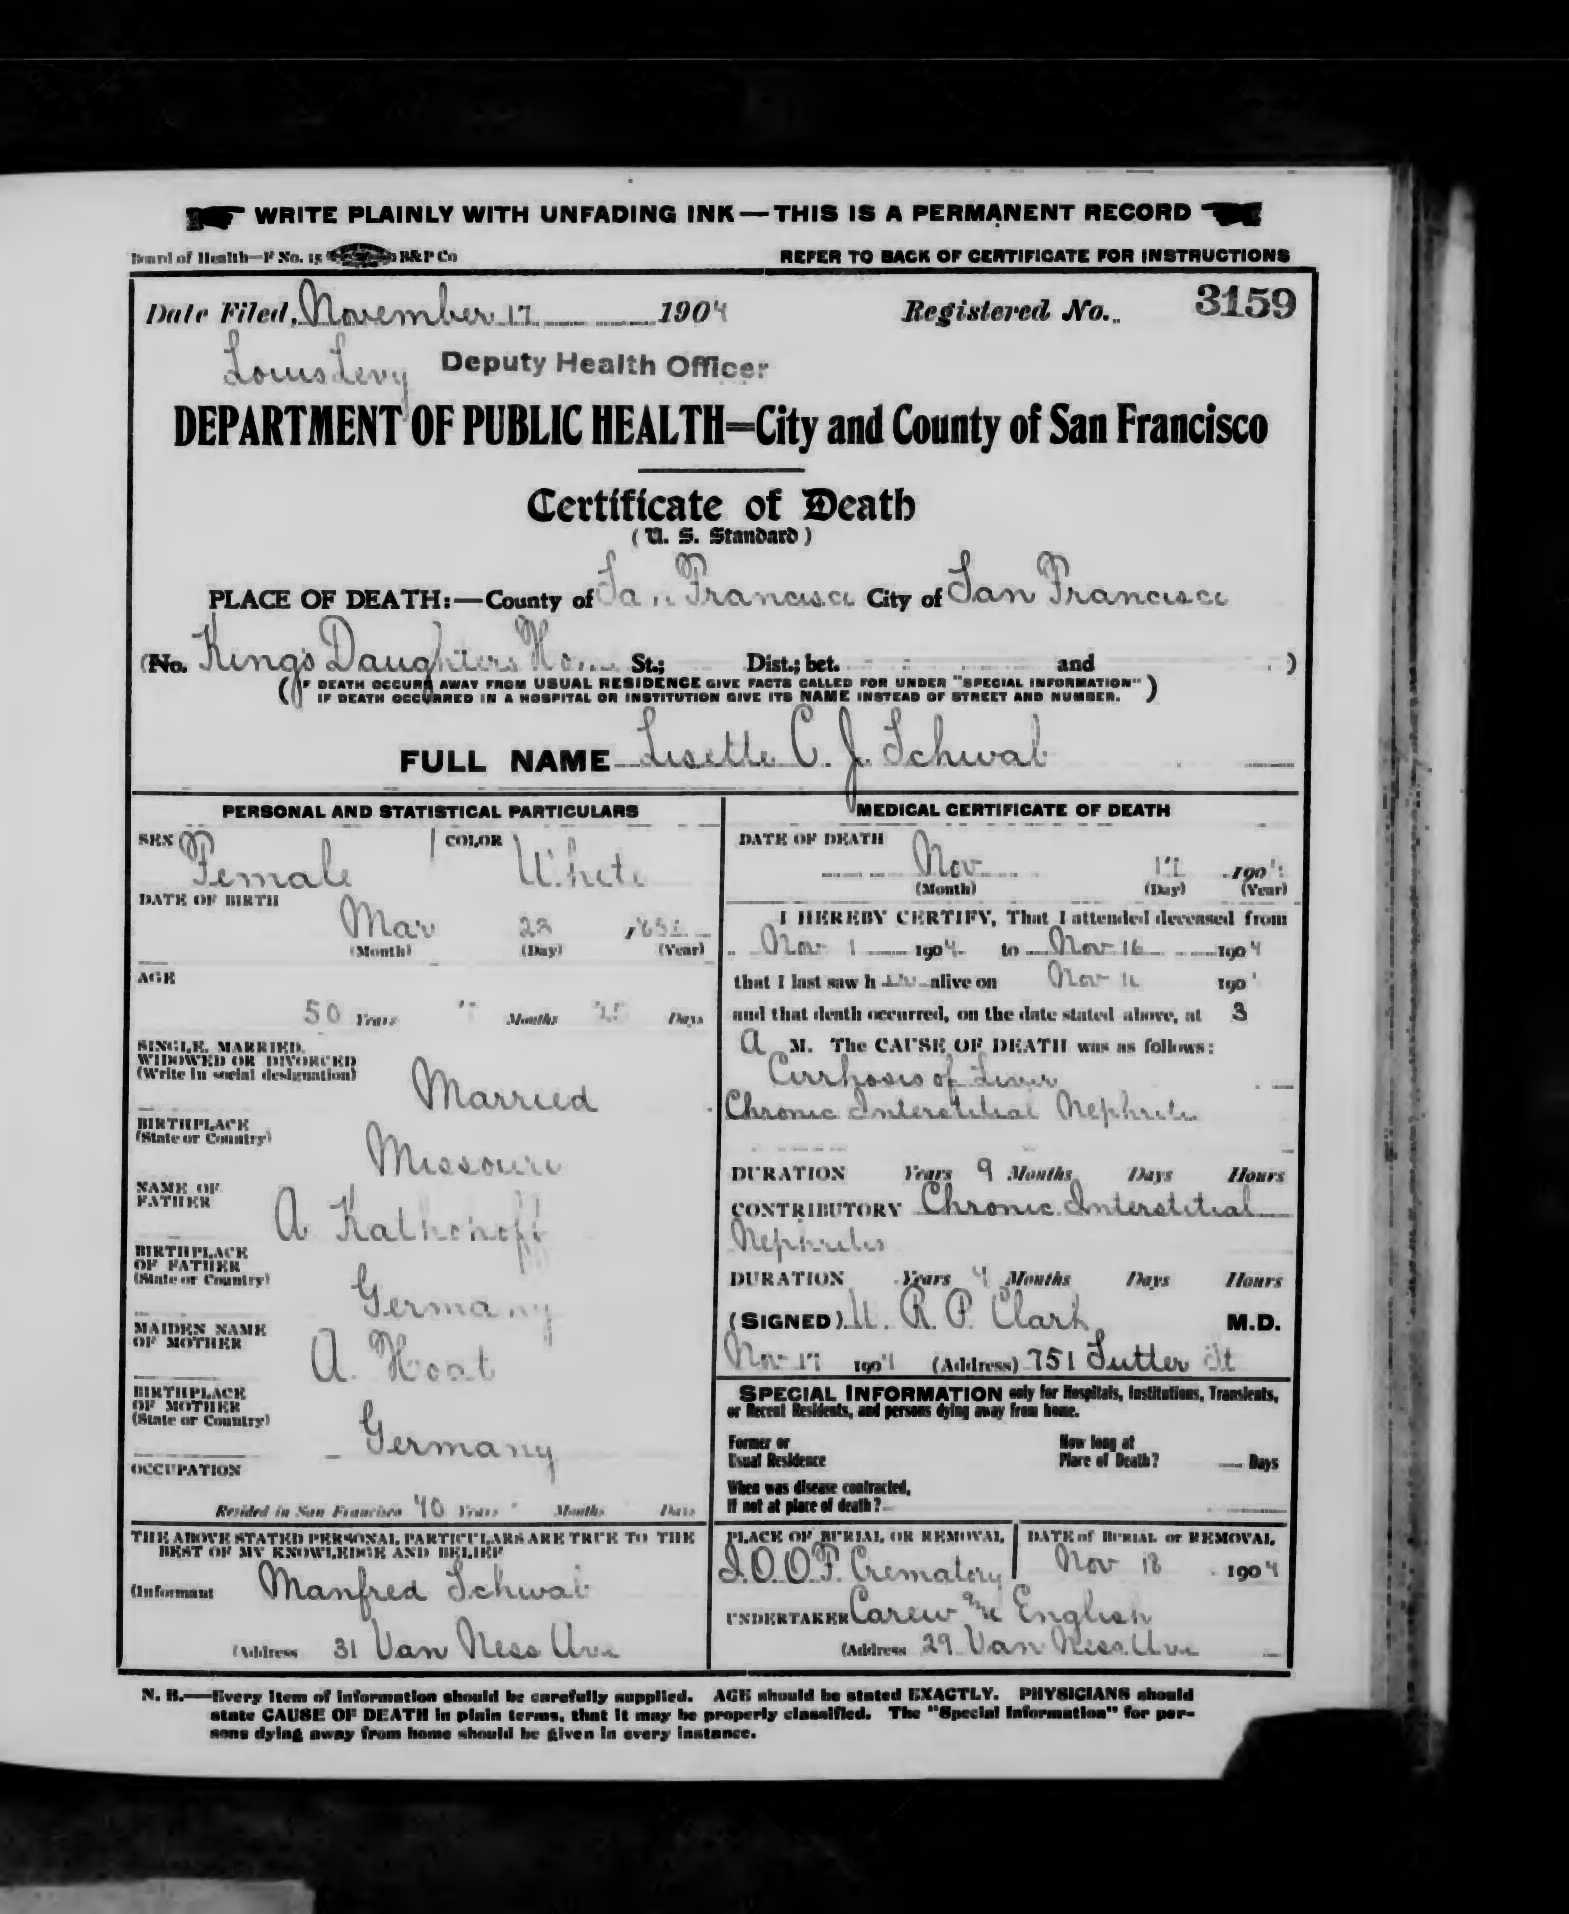 WRITE PLAINLY WITH UNFADING INK — THIS IS A PERMANENT RECORD
Board of Health—F No. 15 B&P Co REFER TO BACK OF CERTIFICATE FOR INSTRUCTIONS
Date Filed, November 17 1904 Registered No. 3159
Louis Levy Deputy Health Officer
DEPARTMENT OF PUBLIC HEALTH—City and County of San Francisco
Certificate of Death
(U. S. Standard)
PLACE OF DEATH:—County of San Francisco City of San Francisco
(No. King's Daughters Home St.; Dist.; bet. and )
(IF DEATH OCCURS AWAY FROM USUAL RESIDENCE GIVE FACTS CALLED FOR UNDER "SPECIAL INFORMATION"
IF DEATH OCCURRED IN A HOSPITAL OR INSTITUTION GIVE ITS NAME INSTEAD OF STREET AND NUMBER.)
FULL NAME Lisette C. J. Schwab
PERSONAL AND STATISTICAL PARTICULARS
SEX Female COLOR White
DATE OF BIRTH
Mar 23
(Month) (Day) (Year)
AGE
50 Years Months Days
SINGLE, MARRIED,
WIDOWED OR DIVORCED
(Write in social designation)
Married
BIRTHPLACE
(State or Country)
Missouri
NAME OF
FATHER
A
BIRTHPLACE
OF FATHER
(State or Country)
Germany
MAIDEN NAME
OF MOTHER
A.
BIRTHPLACE
OF MOTHER
(State or Country)
Germany
OCCUPATION
Resided in San Francisco 40 Years Months Days
THE ABOVE STATED PERSONAL PARTICULARS ARE TRUE TO THE
BEST OF MY KNOWLEDGE AND BELIEF
(Informant Manfred Schwab
(Address 31 Van Ness Ave
MEDICAL CERTIFICATE OF DEATH
DATE OF DEATH
Nov 17 1904
(Month) (Day) (Year)
I HEREBY CERTIFY, That I attended deceased from
Nov 1 1904 to Nov 16 1904
that I last saw her alive on Nov 16 190
and that death occurred, on the date stated above, at 3
A M. The CAUSE OF DEATH was as follows:
Cirrhosis of Liver
Chronic Interstitial Nephritis
DURATION Years 9 Months Days Hours
CONTRIBUTORY Chronic Interstitial
Nephritis
DURATION Years 4 Months Days Hours
(SIGNED) W. R. P. Clark M.D.
Nov 17 1904 (Address) 751 Sutter St
SPECIAL INFORMATION only for Hospitals, Institutions, Transients,
or Recent Residents, and persons dying away from home.
Former or
Usual Residence
How long at
Place of Death? Days
When was disease contracted,
If not at place of death?
PLACE OF BURIAL OR REMOVAL
I.O.O.F. Crematory
DATE of BURIAL or REMOVAL
Nov 18 1904
UNDERTAKER Carew and English
(Address 29 Van Ness Ave
N. B.—Every item of information should be carefully supplied. AGE should be stated EXACTLY. PHYSICIANS should
state CAUSE OF DEATH in plain terms, that it may be properly classified. The "Special Information" for per-
sons dying away from home should be given in every instance.